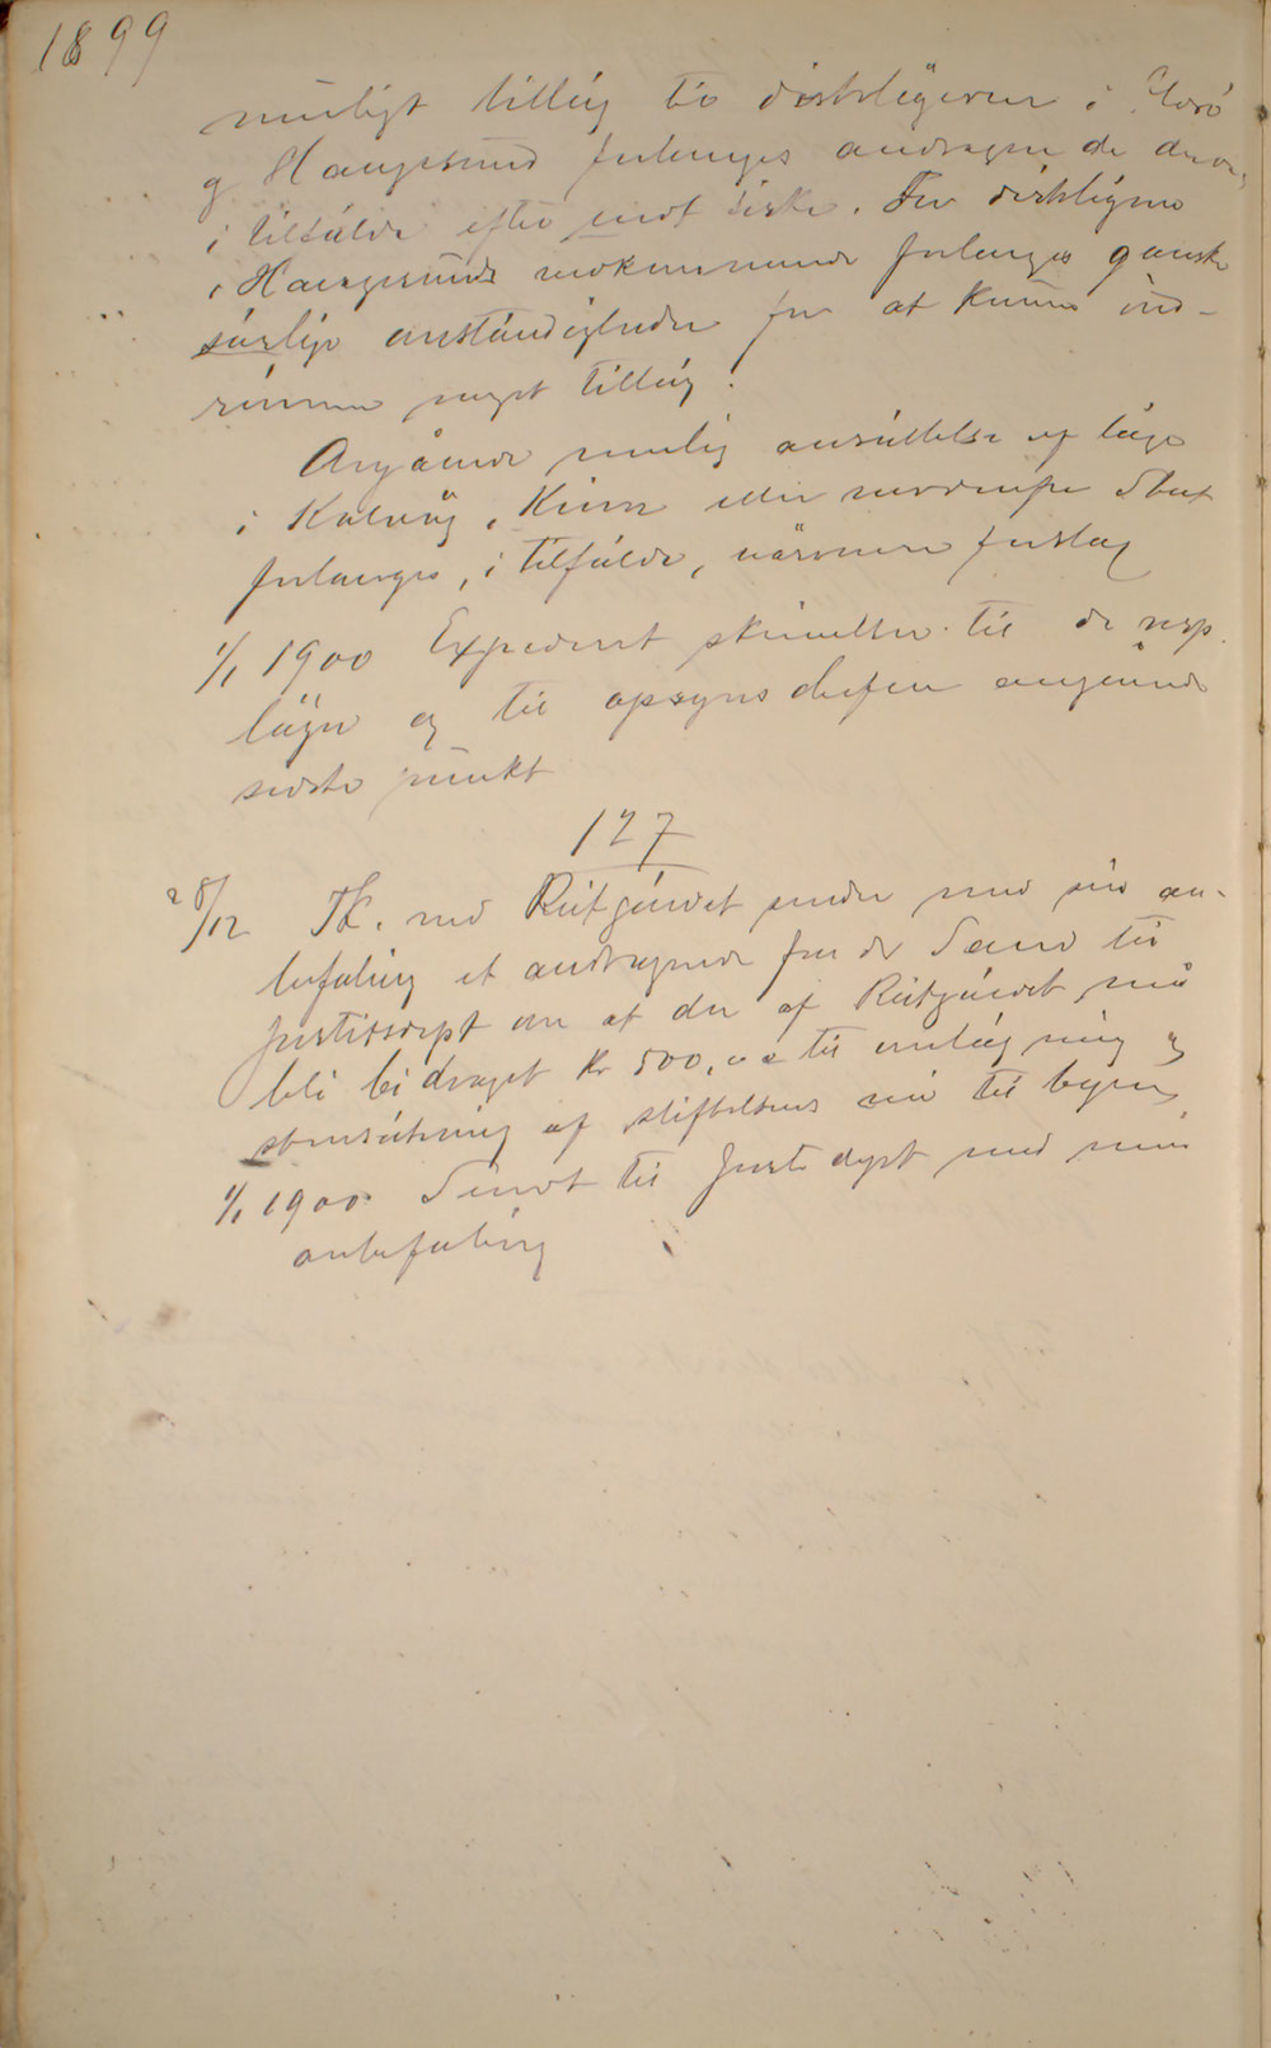 1899
muligt tillæg til distrlægerne i Florö
og Haugesund forlanges andragende derom
i tilfælde efter endt fiske. For distrlægerne
i Haugesunds vedkommende forlanges ganske
særlige omstændigheder for at kunne ind-
rømme noget tillæg.
Angående mulig ansættelse af læge
i Kalvåg, Kinn eller nordenfor Stat
forlanges, i tilfælde, nærmere forslag
1/1 1900 Expederet skrivelser til de resp.
læger og til opsynschefen angående
sidste punkt
127
28/12 Th. ved Reitgjerdet sender med sin an-
befaling et andragende fra de Sand til
Justitsdept om at der af Reitgjerdet må
bli bidraget kr 500,00 til omlægning og
stensætning af stiftelsens vei til byen,
1/1 1900. Sendt til Justdept med min
anbefaling